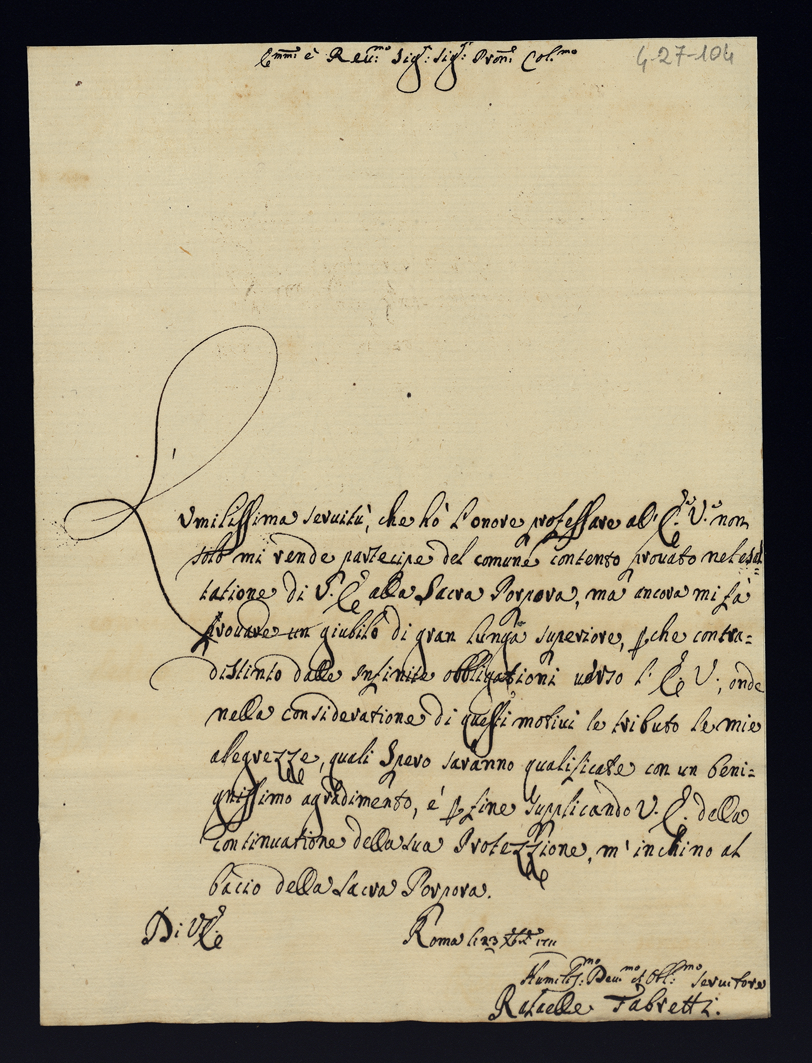 Em.mo è Reu.mo Sig.r Sig.r Pron.e Col.mo
4-27-104
L'umilissima seruitù, che hò l'onore professare all' E. V. non
solo mi rende partecipe del comune contento prouato nel esal=
tatione di V. E. alla Sacra Porpora, ma ancora mi fà
prouare un giubilo di gran lunga superiore, p che contra=
distinto dalle infinite obbligationi uerso l' E. V., onde
nella consideratione di questi motiui le tributo le mie
alegrezze, quali spero saranno qualificate con un beni=
gnissimo agradimento, e' p fine supplicando V. E. della
continuatione della sua Protezzione, m'inchino al
bacio della Sacra Porpora.
Di V. E. Roma li 23 Xbre 1711
Humiliss.mo Deu.mo et Obl.mo seruitore
Rafaelle Fabretti.